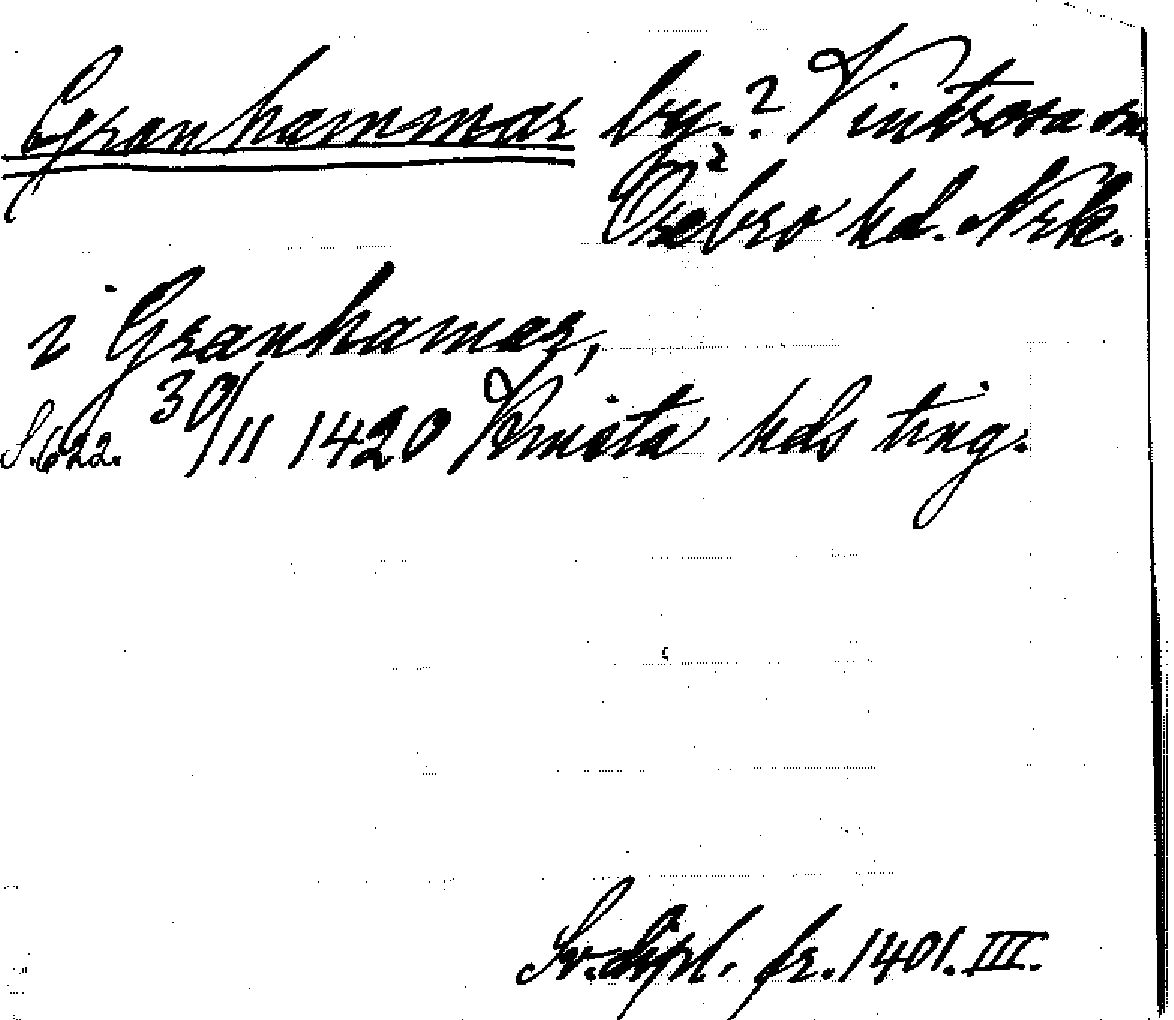 Granhammar by.? Vintrosa sn
Örebro hd. Nrk.
i Granhamar,
S. 622. 30/11 1420 Kmsta hds ting.
Sv. dipl. fr. 1401. III.